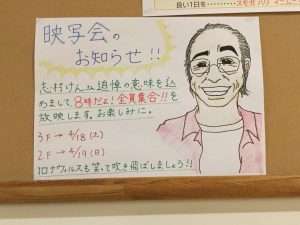 良い1日を……… スモガ ハリ マニムニ
映写会の
お知らせ!!
志村けんさん追悼の意味を込
めまして、8時だョ!全員集合!!を
放映します。お楽しみに。
3F → 4/18 (土)
2F → 4/19 (日)
コロナウィルスも笑って吹き飛ばしましょう!!